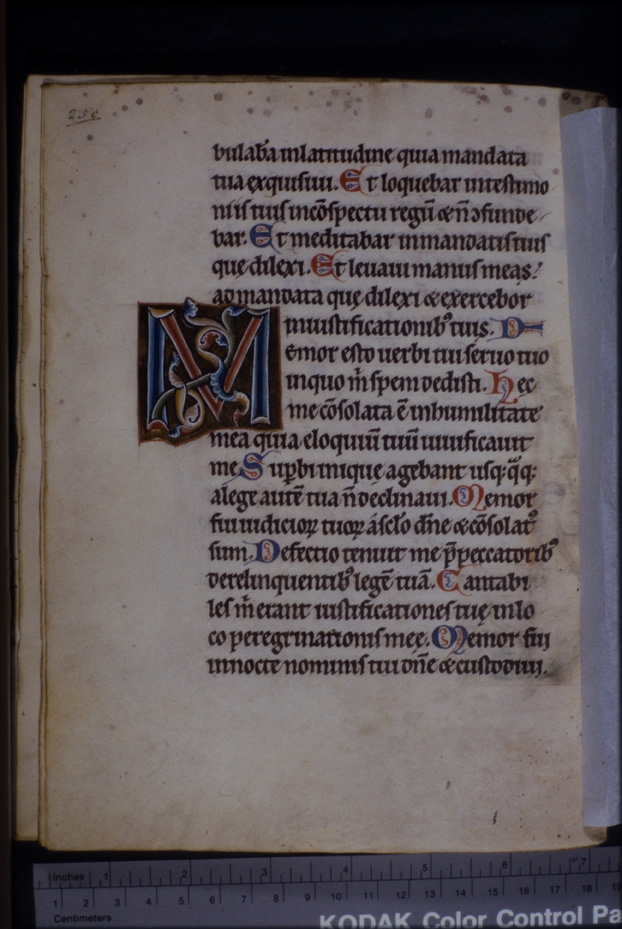 bulaba̅ inlatitudine quia mandata
tua exquisiui. Et loquebar intestimo
niis tuis inco̅spectu regu̅ & n̅ ↄfunde
bar. Et meditabar inmandatis tuis
que̜ dilexi. Et leuaui manus meas
ad mandata que̜ dilexi & exercebor
iniustificationib᾿ tuis. M
emor esto uerbi tui seruo tuo
inquo m̅ spem dedisti. Hec
me co̅solata e̅ inhumilitate
mea quia eloquiu̅ tuu̅ uiuificauit
me. Supbi inique agebant usq; q̅q;
alege aute̅ tua n̅ declinaui. Memor
fui iudicioꝝ tuoꝝ áscl̅o dn̅e & co̅solat᾿
sum. Defectio tenuit me p̅peccatorib᾿
derelinquentib᾿ lege̅ tua̅. Cantabi
les m̅ erant iustificationes tue̜ inlo
co peregrinationis mee̜. Memor fui
innocte nominis tui dn̅e & custodiui.
Inches 1 2 3 4 5 6 7
1 2 3 4 5 6 7 8 9 10 11 12 13 14 15 16 17 18 19
Centimeters
KODAK Color Control Pa